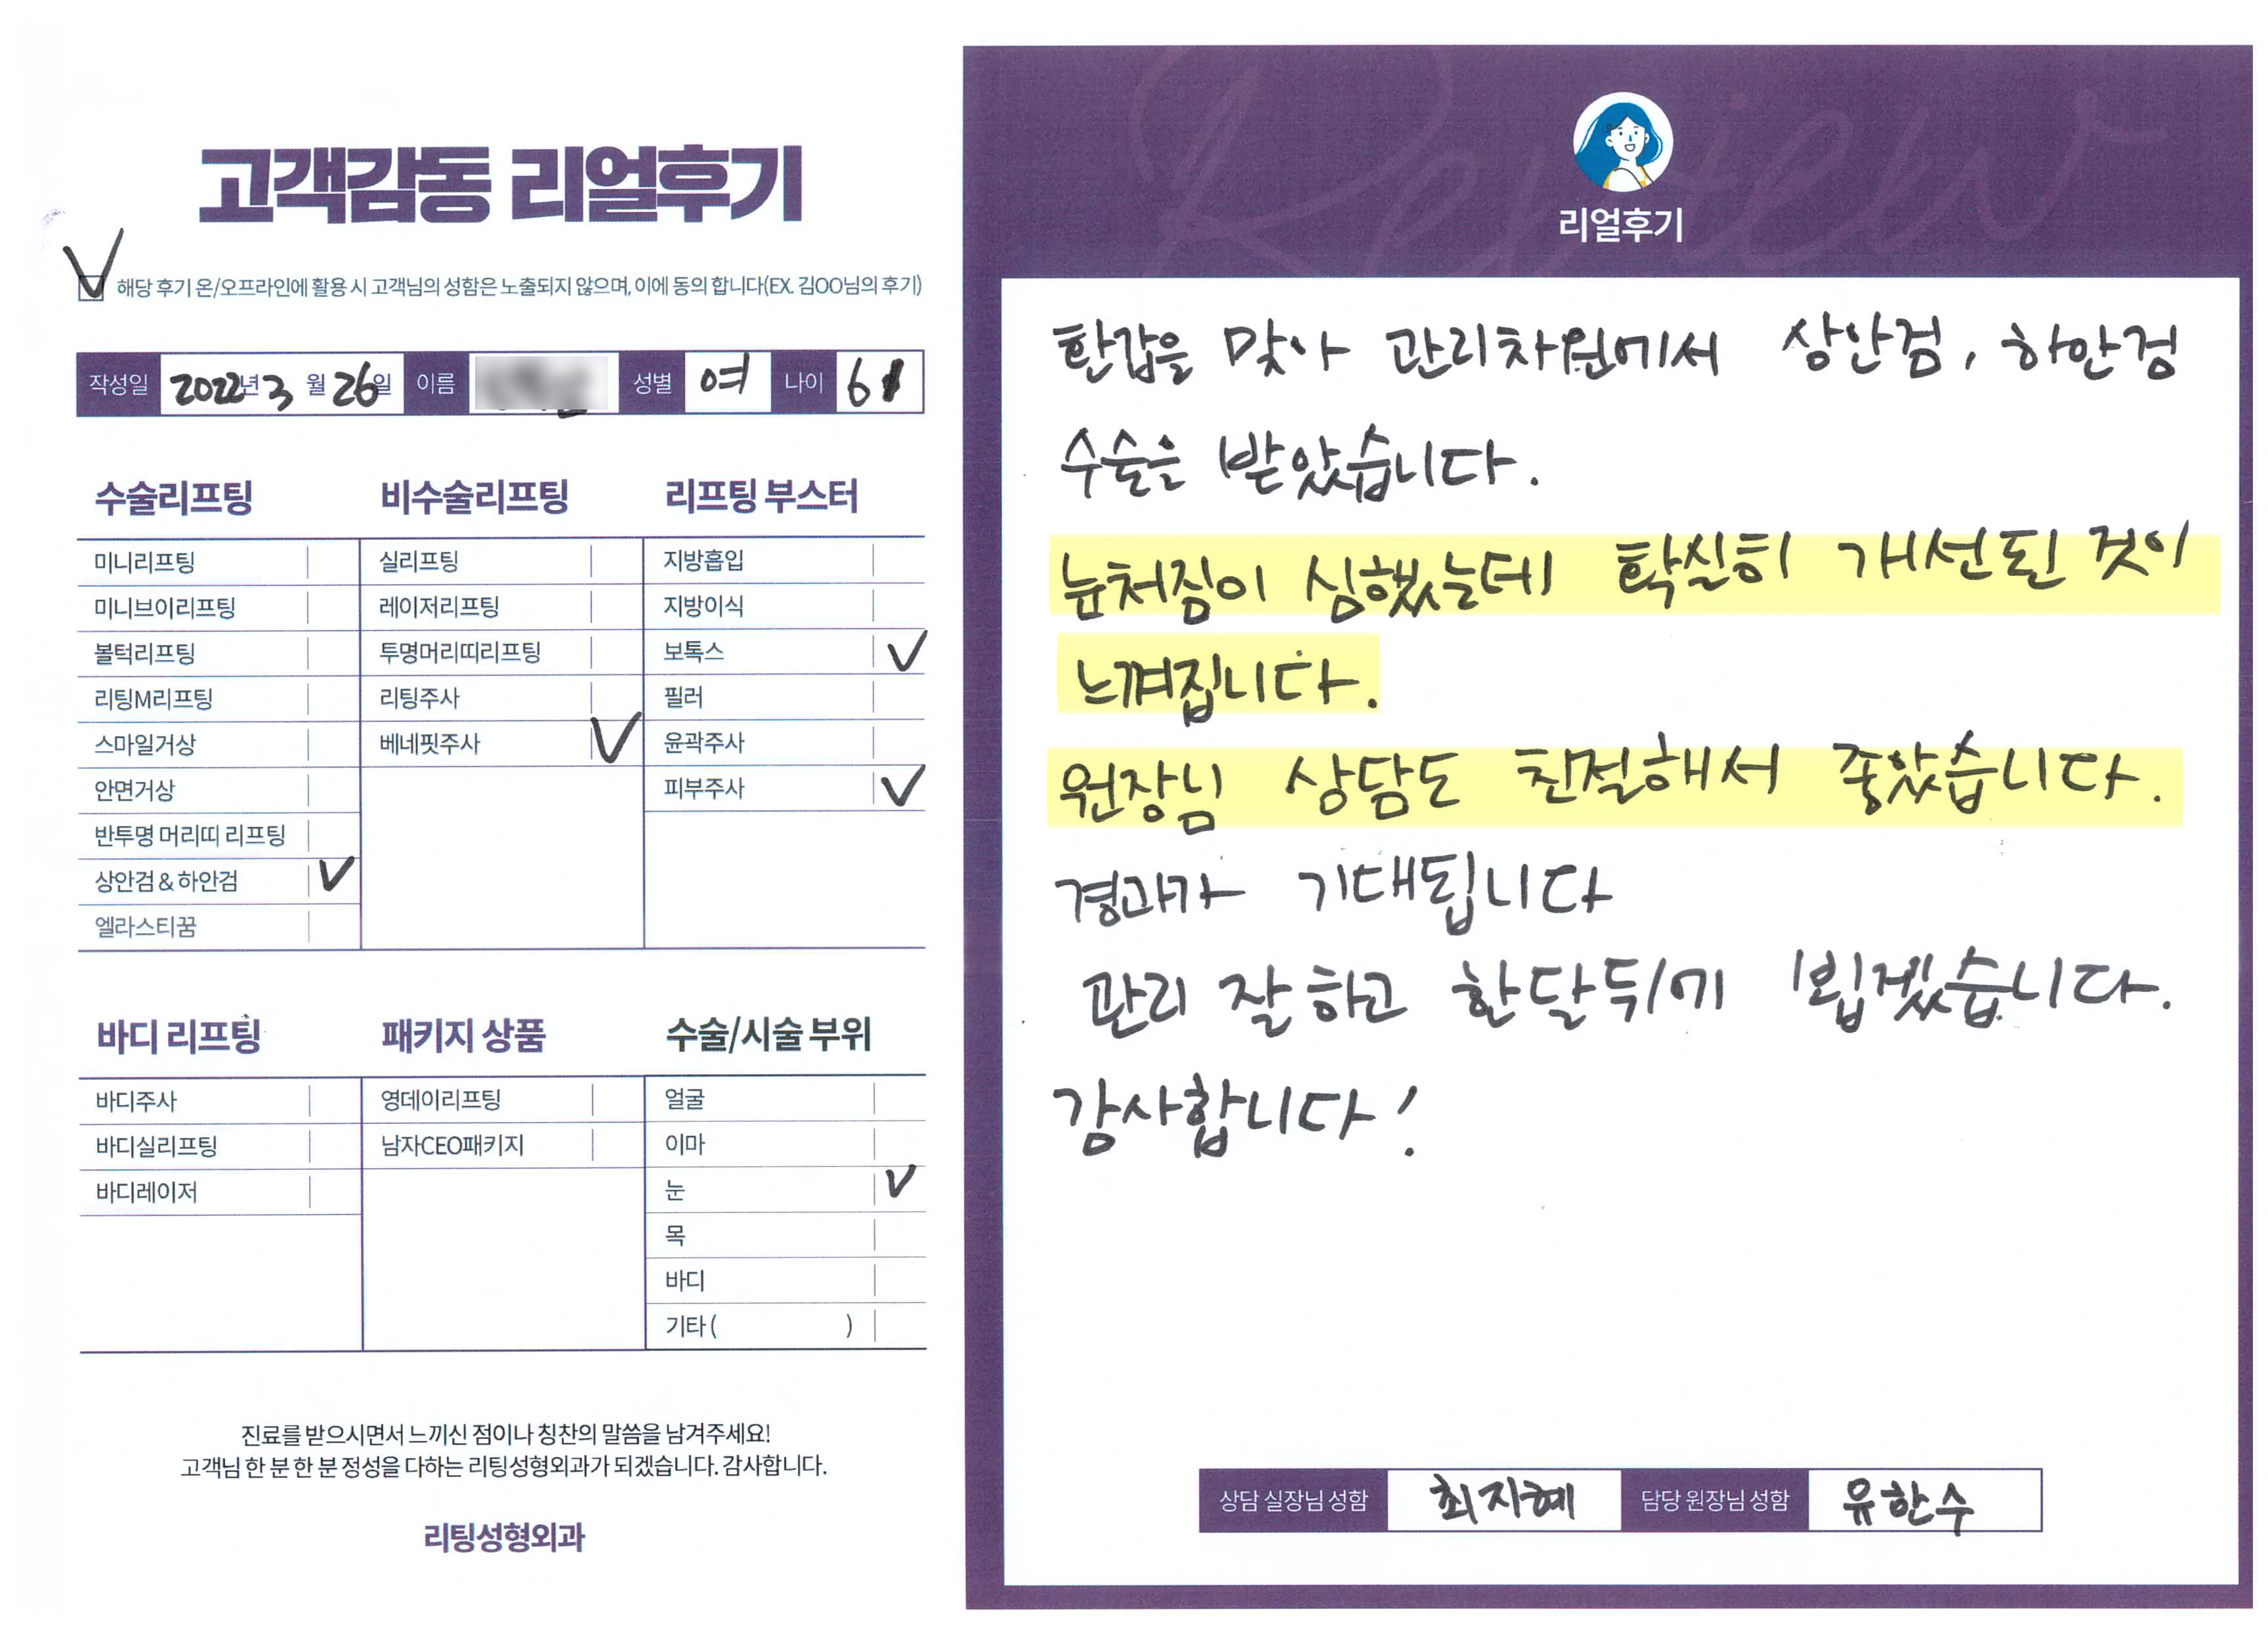 고객감동 리얼후기
✓ 해당 후기 온/오프라인에 활용 시 고객님의 성함은 노출되지 않으며, 이에 동의 합니다(EX. 김OO님의 후기)
작성일 2022년 3월 26일 이름 성별 여 나이 61
수술리프팅
미니리프팅
미니브이리프팅
볼턱리프팅
리팅M리프팅
스마일거상
안면거상
반투명 머리띠 리프팅
상안검 & 하안검 ✓
엘라스티꿈
비수술리프팅
실리프팅
레이저리프팅
투명머리띠리프팅
리팅주사
베네핏주사 ✓
리프팅 부스터
지방흡입
지방이식
보톡스 ✓
필러
윤곽주사
피부주사 ✓
바디 리프팅
바디주사
바디실리프팅
바디레이저
패키지 상품
영데이리프팅
남자CEO패키지
수술/시술 부위
얼굴
이마
눈 ✓
목
바디
기타 ( )
진료를 받으시면서 느끼신 점이나 칭찬의 말씀을 남겨주세요!
고객님 한 분 한 분 정성을 다하는 리팅성형외과가 되겠습니다. 감사합니다.
리팅성형외과
Review
리얼후기
환갑을 맞아 관리차원에서 상안검, 하안검
수술을 받았습니다.
눈처짐이 심했는데 확실히 개선된 것이
느껴집니다.
원장님 상담도 친절해서 좋았습니다.
경과가 기대됩니다
관리 잘 하고 한달뒤에 뵙겠습니다.
감사합니다!
상담 실장님 성함 최지혜 담당 원장님 성함 유한수